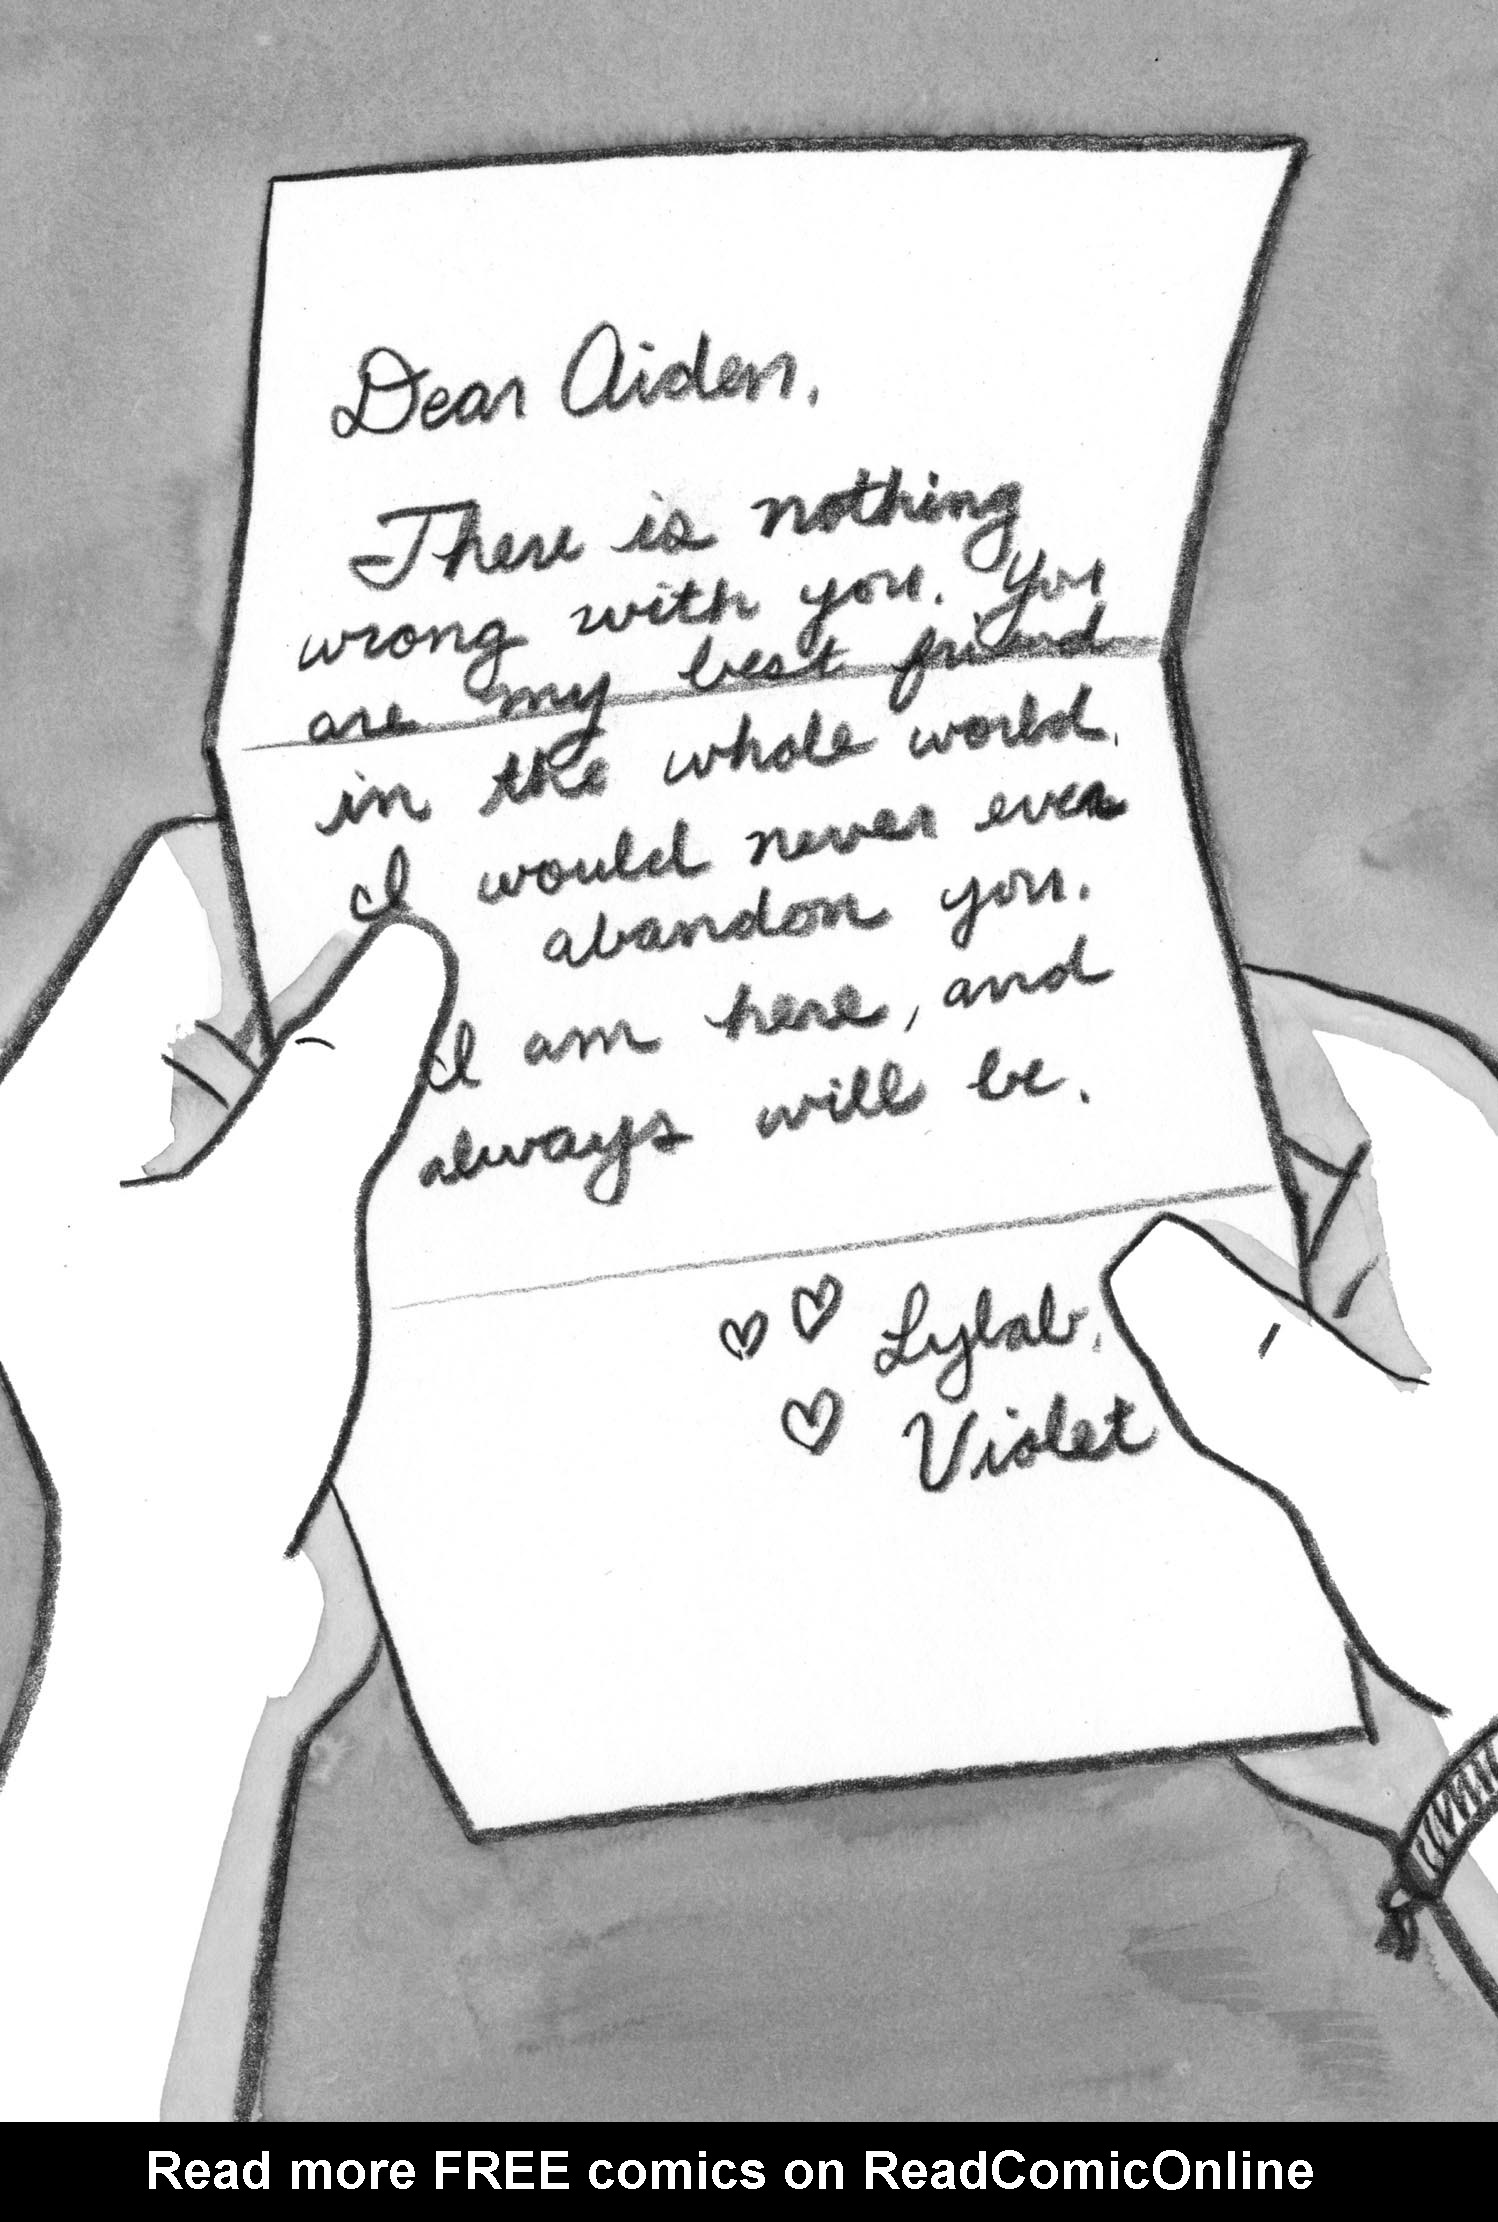 Dear Aiden,
There is nothing
wrong with you. You
are my best friend
in the whole world.
I would never ever
abandon you.
I am here, and
always will be.
Lylab,
Violet
Read more FREE comics on ReadComicOnline